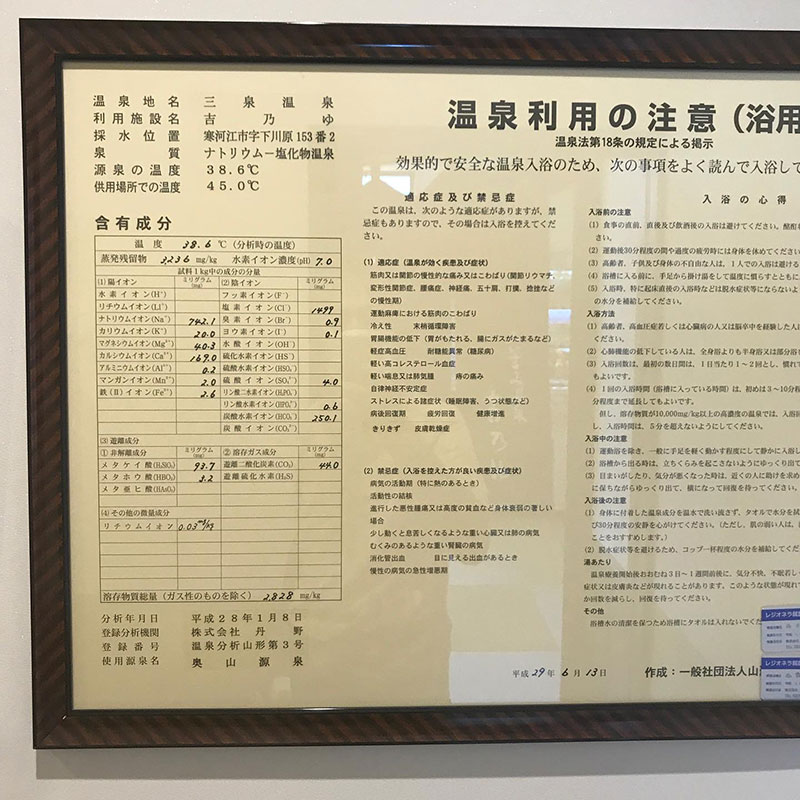 温泉地名 三泉温泉
利用施設名 吉乃ゆ
採水位置 寒河江市字下川原153番2
泉質 ナトリウムー塩化物温泉
源泉の温度 38.6℃
供用場所での温度 45.0℃
含有成分
温度 38.6 ℃(分析時の温度)
蒸発残留物 3236 mg/kg 水素イオン濃度(pH) 7.0
試料1kg中の成分の分量
(1)陽イオン ミリグラム(mg) (2)陰イオン ミリグラム(mg)
水素イオン(H⁺) フッ素イオン(F⁻)
リチウムイオン(Li⁺) 塩素イオン(Cl⁻) 1499
ナトリウムイオン(Na⁺) 742.1 臭素イオン(Br⁻) 0.9
カリウムイオン(K⁺) 20.0 ヨウ素イオン(I⁻) 0.1
マグネシウムイオン(Mg²⁺) 40.3 水酸イオン(OH⁻)
カルシウムイオン(Ca²⁺) 169.0 硫化水素イオン(HS⁻)
アルミニウムイオン(Al³⁺) 0.2 硫酸水素イオン(HSO₄⁻)
マンガンイオン(Mn²⁺) 2.0 硫酸イオン(SO₄²⁻) 4.0
鉄(Ⅱ)イオン(Fe²⁺) 2.6 リン酸二水素イオン(H₂PO₄⁻)
リン酸水素イオン(HPO₄²⁻) 0.6
炭酸水素イオン(HCO₃⁻) 250.1
炭酸イオン(CO₃²⁻)
(3)遊離成分
①非解離成分 ミリグラム(mg) ②溶存ガス成分 ミリグラム(mg)
メタケイ酸(H₂SiO₃) 93.7 遊離二酸化炭素(CO₂) 44.0
メタホウ酸(HBO₂) 3.2 遊離硫化水素(H₂S)
メタ亜ヒ酸(HAsO₂)
(4)その他の微量成分
リチウムイオン 0.03mg/kg
溶存物質総量(ガス性のものを除く) 2828 mg/kg
分析年月日 平成28年1月8日
登録分析機関 株式会社丹野
登録番号 温泉分析山形第3号
使用源泉名 奥山源泉
温泉利用の注意(浴用
温泉法第18条の規定による掲示
効果的で安全な温泉入浴のため、次の事項をよく読んで入浴して
適応症及び禁忌症
この温泉は、次のような適応症がありますが、禁
忌症もありますので、その場合は入浴を控えてくだ
さい。
(1)適応症(温泉が効く疾患及び症状)
筋肉又は関節の慢性的な痛み又はこわばり(関節リウマチ、
変形性関節症、腰痛症、神経痛、五十肩、打撲、捻挫など
の慢性期)
運動麻痺における筋肉のこわばり
冷え性 末梢循環障害
胃腸機能の低下(胃がもたれる、腸にガスがたまるなど)
軽症高血圧 耐糖能異常(糖尿病)
軽い高コレステロール血症
軽い喘息又は肺気腫 痔の痛み
自律神経不安定症
ストレスによる諸症状(睡眠障害、うつ状態など)
病後回復期 疲労回復 健康増進
きりきず 皮膚乾燥症
(2)禁忌症(入浴を控えた方が良い疾患及び症状)
病気の活動期(特に熱のあるとき)
活動性の結核
進行した悪性腫瘍又は高度の貧血など身体衰弱の著しい
場合
少し動くと息苦しくなるような重い心臓又は肺の病気
むくみのあるような重い腎臓の病気
消化管出血 目に見える出血があるとき
慢性の病気の急性増悪期
入浴の心得
入浴前の注意
(1)食事の直前、直後及び飲酒後の入浴は避けてください。酩酊
さい。
(2)運動後30分程度の間や過度の疲労時には身体を休めてください
(3)高齢者、子供及び身体の不自由な人は、1人での入浴は避ける
(4)浴槽に入る前に、手足から掛け湯をして温度に慣らすとともに
(5)入浴時、特に起床直後の入浴時などは脱水症状等にならないよう
の水分を補給してください。
入浴方法
(1)高齢者、高血圧症若しくは心臓病の人又は脳卒中を経験した人は
ください。
(2)心肺機能の低下している人は、全身浴よりも半身浴又は部分浴
(3)入浴回数は、最初の数日間は、1日当たり1〜2回とし、慣れて
もよいです。
(4)1回の入浴時間(浴槽に入っている時間)は、初めは3〜10分程
分程度まで延長してもよいです。
但し、溶存物質が10,000mg/kg以上の高濃度の温泉では、入浴回
し、入浴時間は、5分を超えないようにしてください。
入浴中の注意
(1)運動浴を除き、一般に手足を軽く動かす程度にして静かに入浴し
(2)浴槽から出る時は、立ちくらみを起こさないようにゆっくり出て
(3)目まいがしたり、気分が悪くなった時は、近くの人に助けを求め
に保ちながらゆっくり出て、横になって回復を待ってください。
入浴後の注意
(1)身体に付着した温泉成分を温水で洗い流さず、タオルで水分を拭
び30分程度の安静を心がけてください。(ただし、肌の弱い人は、
ことをおすすめします。)
(2)脱水症状等を避けるため、コップ一杯程度の水分を補給してくだ
湯あたり
温泉療養開始後おおむね3日〜1週間前後に、気分不快、不眠若し
症状又は皮膚炎などが現れることがあります。このような状態が現れて
か回数を減らし、回復を待ってください。
その他
浴槽水の清潔を保つため浴槽にタオルは入れないでく
平成29年6月13日 作成:一般社団法人山
レジオネラ
レジオネラ